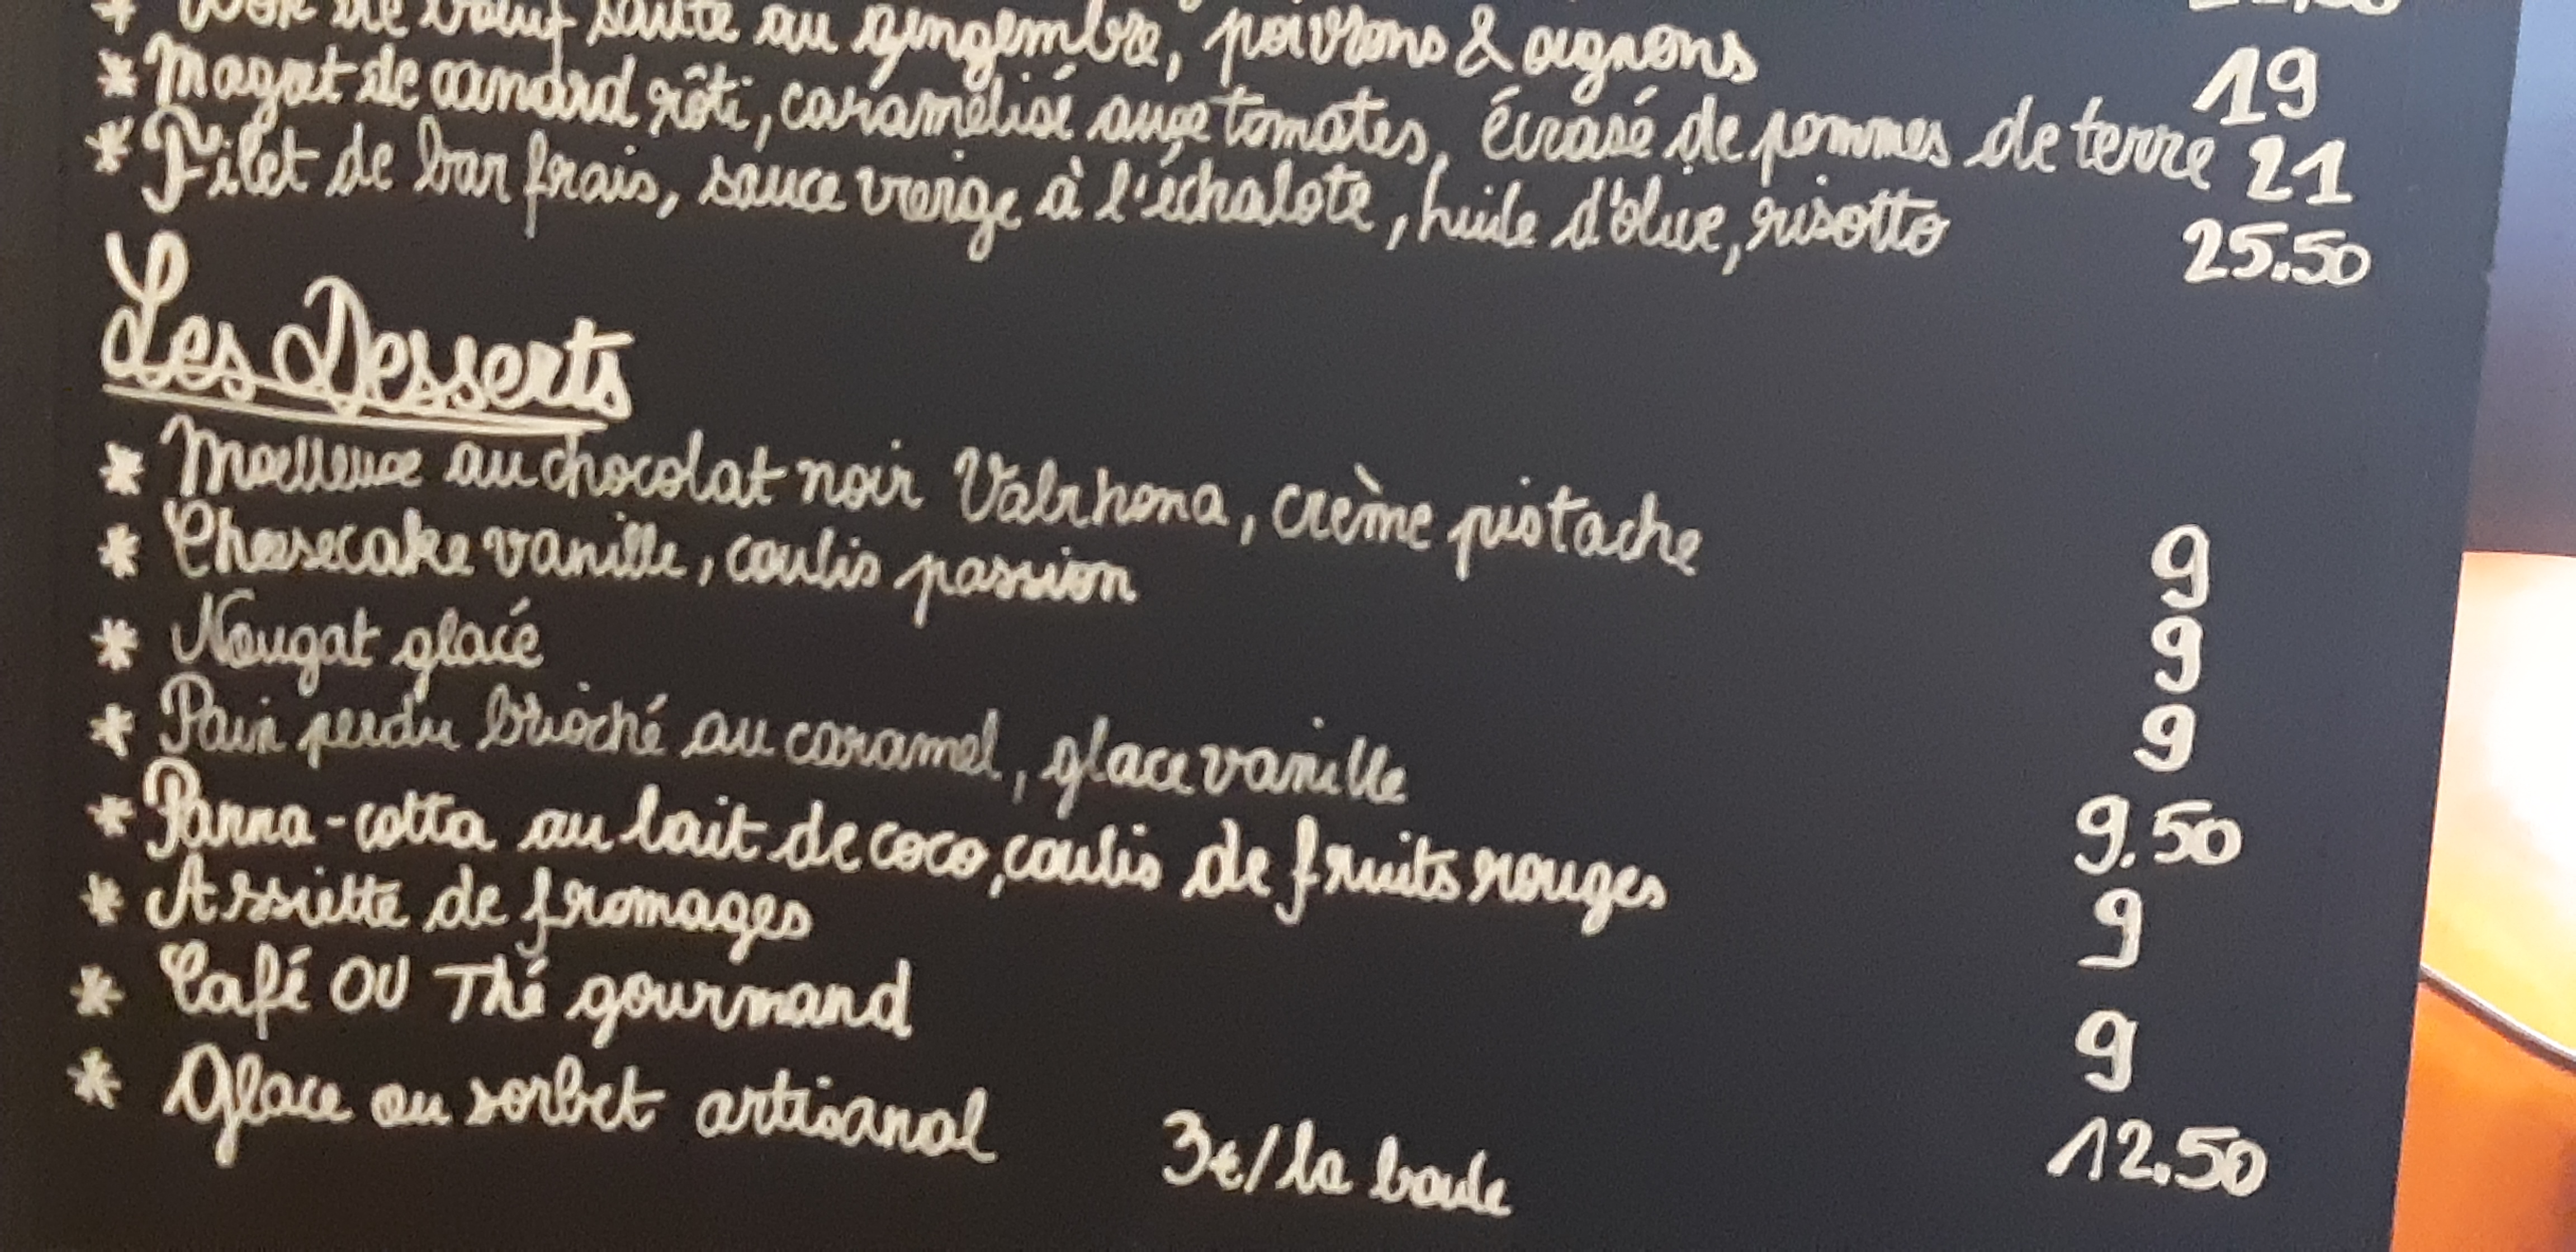 * Wok de bœuf sauté au gingembre, poivrons & oignons 19
* Magret de canard rôti, caramélisé aux tomates, écrasé de pommes de terre 21
* Filet de bar frais, sauce vierge à l'échalote, huile d'olive, risotto 25.50
Les Desserts
* Moelleux au chocolat noir Valrhona, crème pistache 9
* Cheesecake vanille, coulis passion 9
* Nougat glacé 9
* Pain perdu brioché au caramel, glace vanille 9.50
* Panna-cotta au lait de coco, coulis de fruits rouges 9
* Assiette de fromages 9
* Café OU Thé gourmand 12.50
* Glace ou sorbet artisanal 3€/la boule